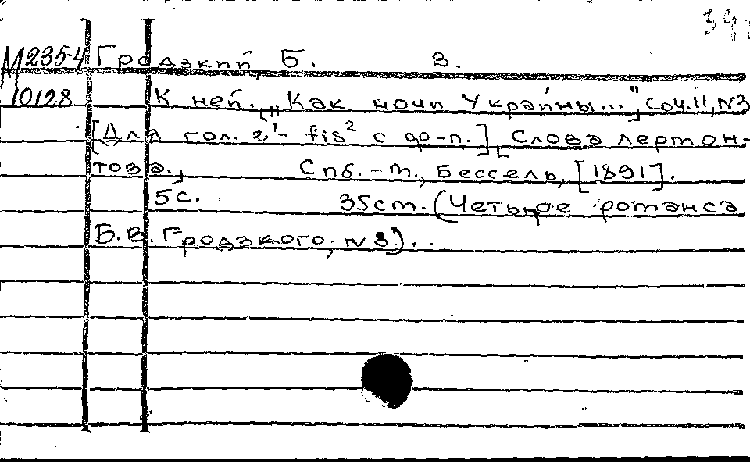 М 2354 Гродзкий Б. В.
10128 К ней. [„Как ночи Украйны...“] Соч. 11, N3
[Для гол. е¹- fis² с ф-п.] Слова Лермон-
това. Спб.-М., Бессель, [1891].
5 с. 35 cm. (Четыре романса
Б. В. Гродзкого, N 3).